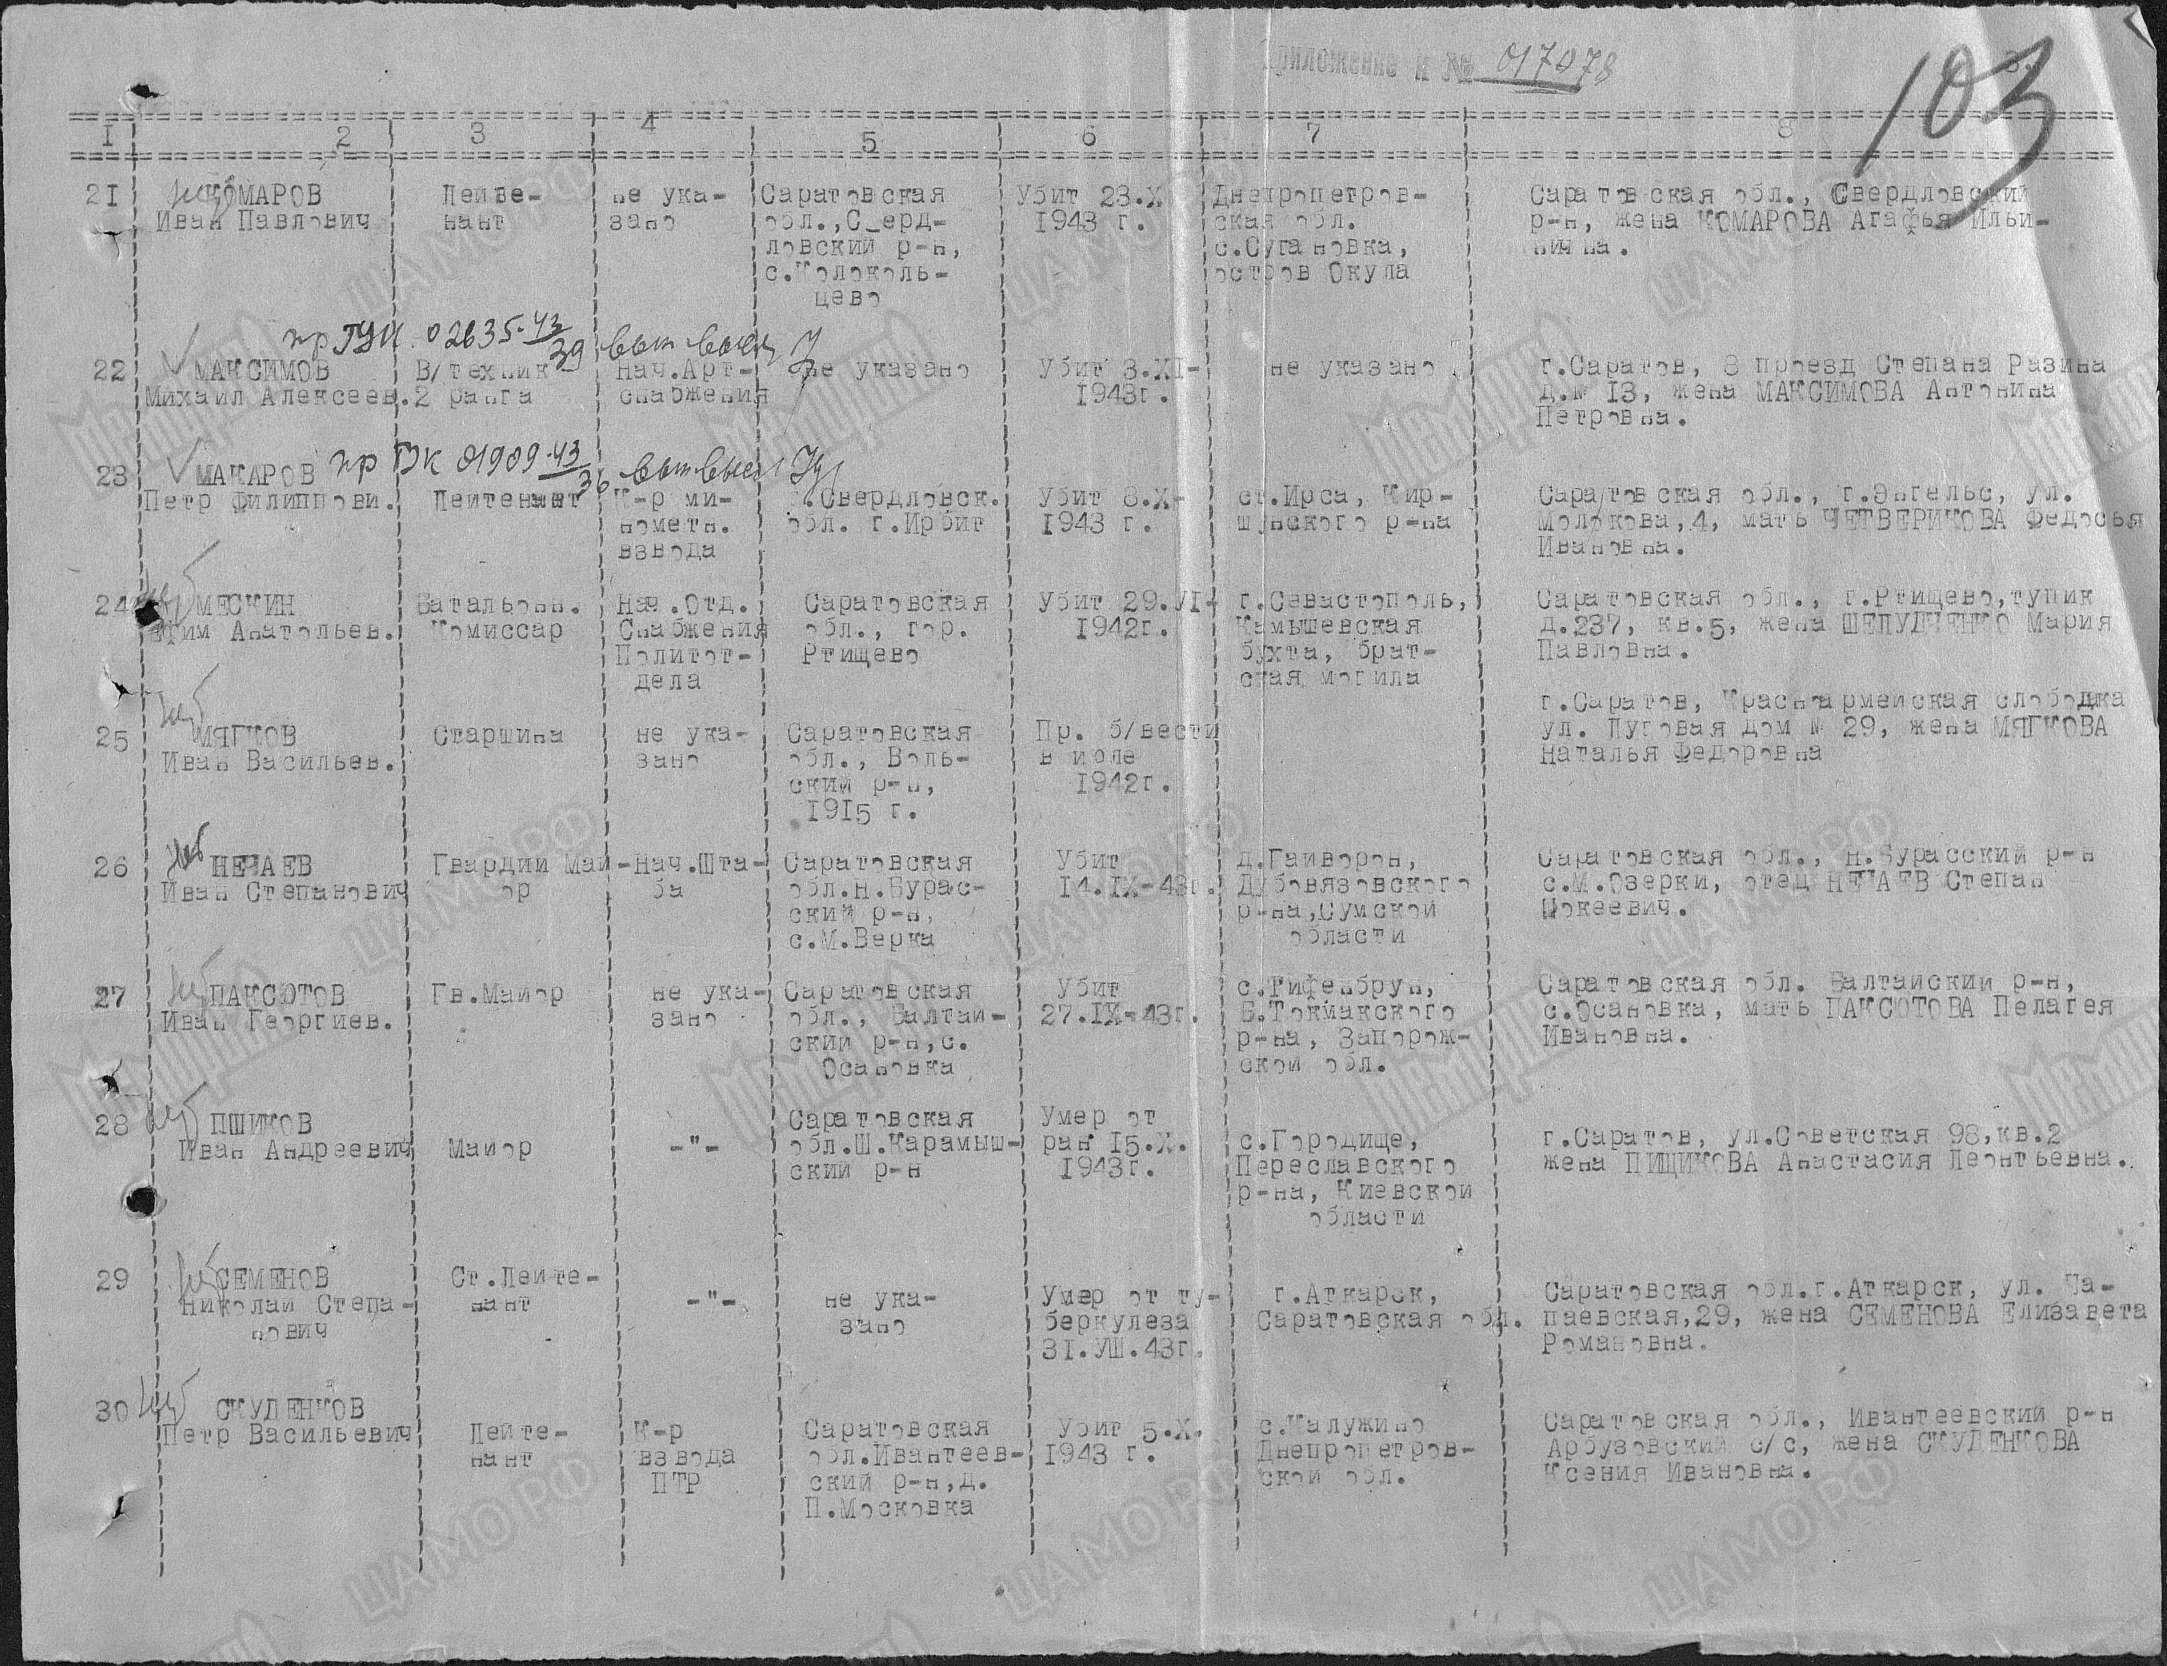 Приложение к № 017078
103
3.
1 2 3 4 5 6 7 8
21 КОМАРОВ Лейте- не ука- Саратовская Убит 23.X Днепропетров- Саратовская обл., Свердловский
Иван Павлович нант зано обл.,С_ерд- 1943 г. ская обл. р-н, жена КОМАРОВА Агафья Ильи-
ловский р-н, с.Сугановка, нична.
с.Колоколь- остров Окула
цево
пр ГУК 02635-43/39
22 МАКСИМОВ В/техник Нач.Арт- не указано Убит 3.XI- не указано г.Саратов, 8 проезд Степана Разина
Михаил Алексеев. 2 ранга снабжения 1943г. д.№ 13, жена МАКСИМОВА Антонина
Петровна.
23 МАКАРОВ пр ГУК 01909-43/36
Петр Филиппови. Лейтенант К-р ми- Свердловск. Убит 8.X- ст.Ирса, Кир- Саратовская обл., г.Энгельс, ул.
нометн. обл. г.Ирбит 1943 г. шунского р-на Молокова,4, мать ЧЕТВЕРИКОВА Федосья
взвода Ивановна.
24 МЕСКИН Батальонн. Нач.Отд. Саратовская Убит 29.УI- г.Севастополь, Саратовская обл., г.Ртищево,тупик
Ефим Анатольев. Комиссар Снабжения обл., гор. 1942г. Камышевская д.237, кв.5, жена ШЕПУДЧЕНКО Мария
Политот- Ртищево бухта, брат- Павловна.
дела ская могила
г.Саратов, Красноармейская слободка
25 МЯГКОВ Старшина не ука- Саратовская Пр. б/вести ул. Луговая дом № 29, жена МЯГКОВА
Иван Васильев. зано обл., Воль- в июле Наталья Федоровна
ский р-н, 1942г.
1915 г.
26 НЕЧАЕВ Гвардии Май- Нач.Шта- Саратовская Убит д.Гайворон, Саратовская обл., Н.Бурасский р-н
Иван Степанович ор ба обл.Н.Бурас- 14.IX-43г. Дубовязовского с.М.Озерки, отец НЕЧАЕВ Степан
ский р-н, р-на,Сумской Мокеевич.
с.М.Верка области
27 ПАКСЮТОВ Гв.Майор не ука- Саратовская Убит с.Тифенбрун, Саратовская обл. Балтайский р-н,
Иван Георгиев. зано обл., Балтай- 27.IX-43г. Б.Токмакского с.Осановка, мать ПАКСЮТОВА Пелагея
ский р-н,с. р-на, Запорож- Ивановна.
Осановка ской обл.
28 ПШИКОВ Саратовская Умер от
Иван Андреевич Майор -"- обл.Ш.Карамыш- ран 15.X. с.Городище, г.Саратов, ул.Советская 98,кв.2
ский р-н 1943г. Переславского жена ПИЩИКОВА Анастасия Леонтьевна.
р-на, Киевской
области
29 СЕМЕНОВ Ст.Лейте-
Николай Степа- нант -"- не ука- Умер от ту- г.Аткарск, Саратовская обл.г.Аткарск, ул. Ча-
нович зано беркулеза Саратовская обл. паевская,29, жена СЕМЕНОВА Елизавета
31.УШ.43г. Романовна.
30 СКУДЕНКОВ
Петр Васильевич Лейте- К-р Саратовская Убит 5.X. с.Калужино Саратовская обл., Ивантеевский р-н
нант взвода обл.Ивантеев- 1943 г. Днепропетров- Арбузовский с/с, жена СКУДЕНКОВА
ПТР ский р-н,д. ской обл. Ксения Ивановна.
П.Московка